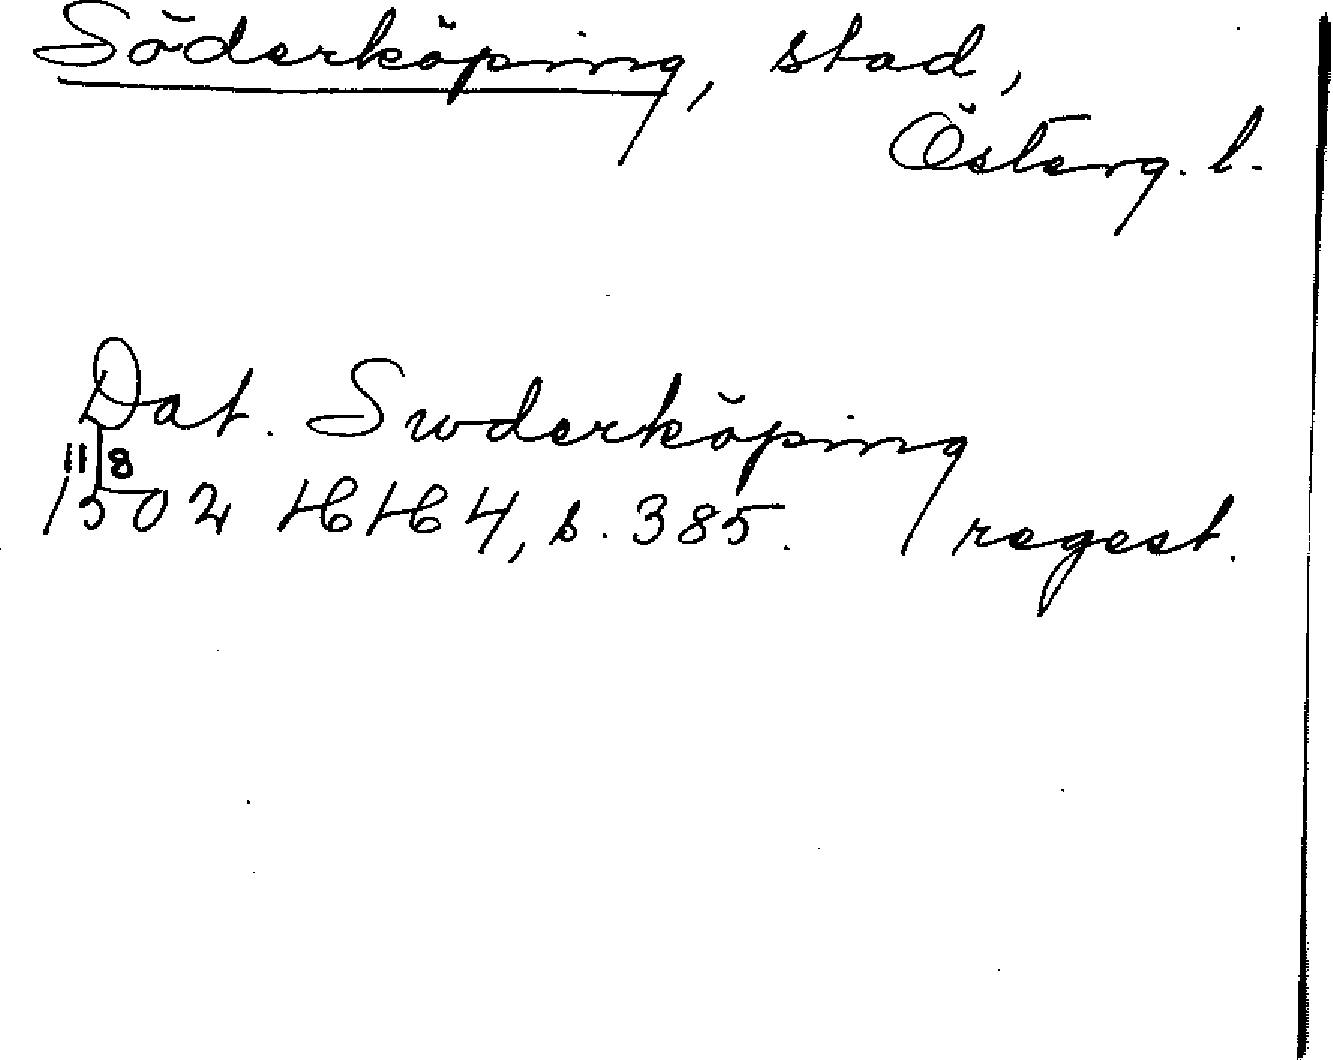 Söderköping, stad,
Österg. l.
Dat. Swderköping
11/8
1502 HH 4, s. 385. regest.